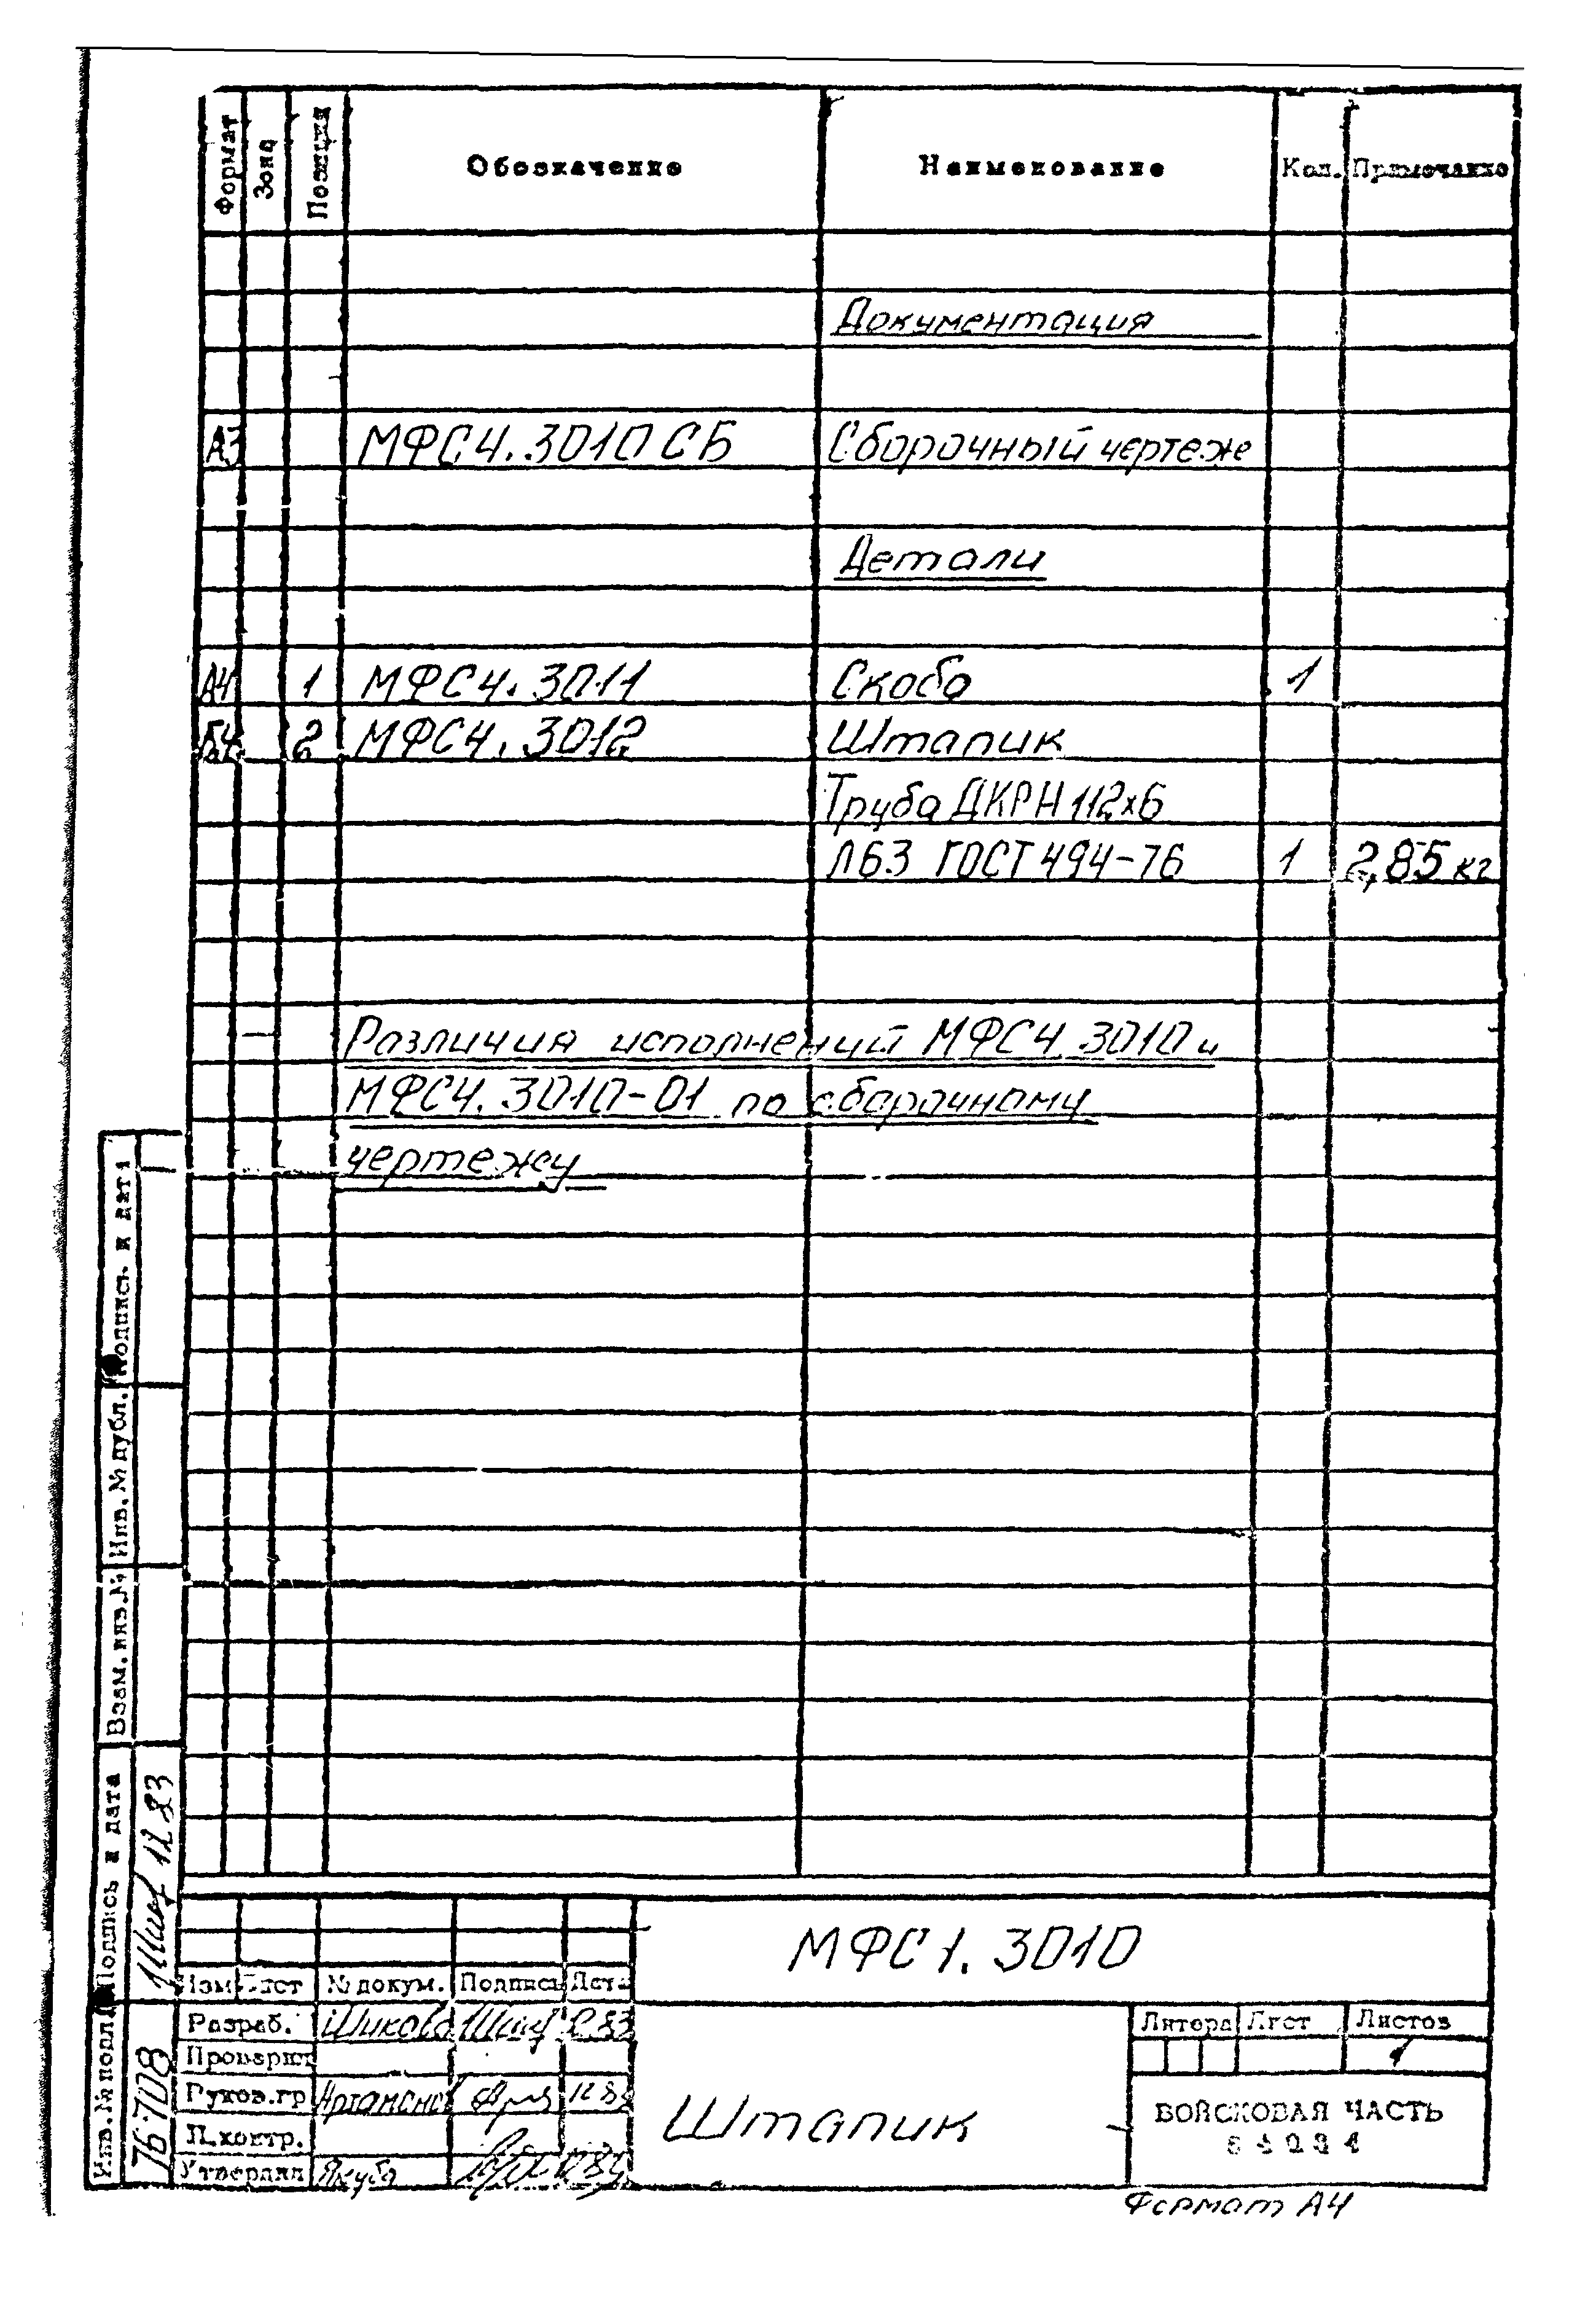 Формат Зона Позиция Обозначение Наименование Кол. Примечание
Документация
А3 МФС4.3010 СБ Сборочный чертеже
Детали
А4 1 МФС4.3011 Скоба 1
Б4 2 МФС4.3012 Штапик
Труба ДКРН 112х6
Л63 ГОСТ 494-76 1 2,85 кг
Различия исполнений МФС4.3010 и
МФС4.3010-01 по сборочному
чертежу
Инв.№ подл. Подпись и дата Взам.инв.№ Инв.№ дубл. Подпись и дата
76708 12.83
МФС1.3010
Изм Лист № докум. Подпись Дата
Разраб. Шикова 12.83
Проверил
Руков.гр Артамонов 12.83
Н.контр.
Утвердил Якуба
Штапик
Литера Лист Листов
1
ВОЙСКОВАЯ ЧАСТЬ
Формат А4